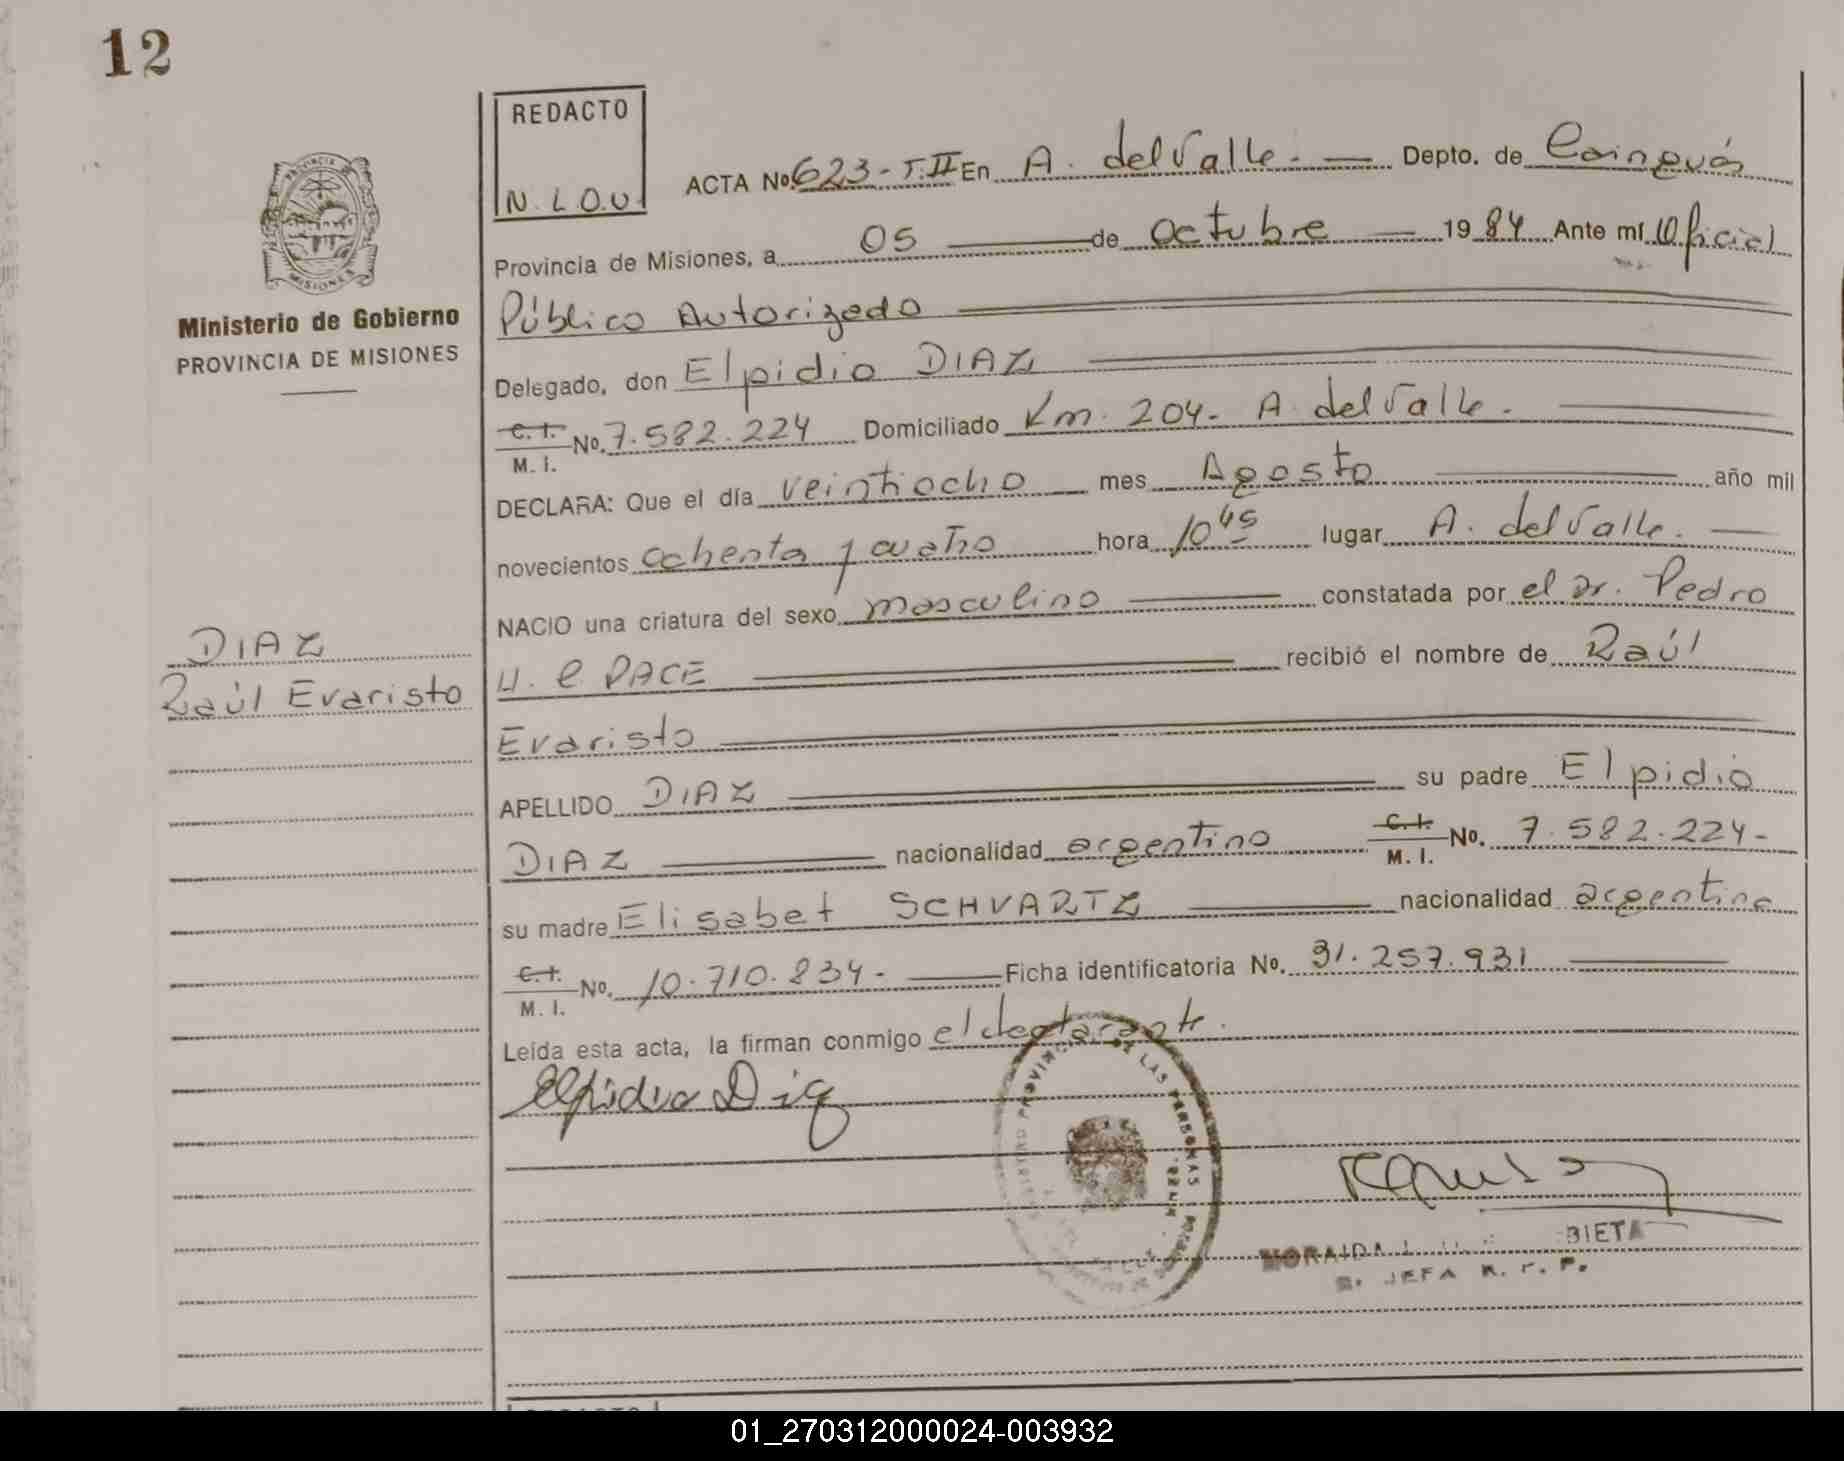 12
REDACTO
N. L O.U
ACTA No. 623-T.II En A. del Valle. Depto. de Cainguás
Provincia de Misiones, a 05 de octubre 1984 Ante mí Oficial
Público Autorizado
Delegado, don Elpidio DIAZ
C. I. M. I. No. 7.582.224 Domiciliado Km. 204- A. del Valle.
DECLARA: Que el día veintiocho mes Agosto año mil
novecientos ochenta y cuatro hora 10 45 lugar A. del Valle.
NACIO una criatura del sexo masculino constatada por el Dr. Pedro
PACE recibió el nombre de Raúl
Evaristo
APELLIDO DIAZ su padre Elpidio
DIAZ nacionalidad argentino C. I. M. I. No. 7.582.224-
su madre Elisabet SCHVARTZ nacionalidad argentina
C. I. M. I. No. 10.710.834- Ficha identificatoria No. 31.257.931
Leída esta acta, la firman conmigo el declarante.
Elpidio Diaz
PROVINCIA
MISIONES
Ministerio de Gobierno
PROVINCIA DE MISIONES
DIAZ
Raúl Evaristo
PROVINC DE LAS PERSONAS
BIETA
JEFA R. P.
REDACTO
01_270312000024-003932